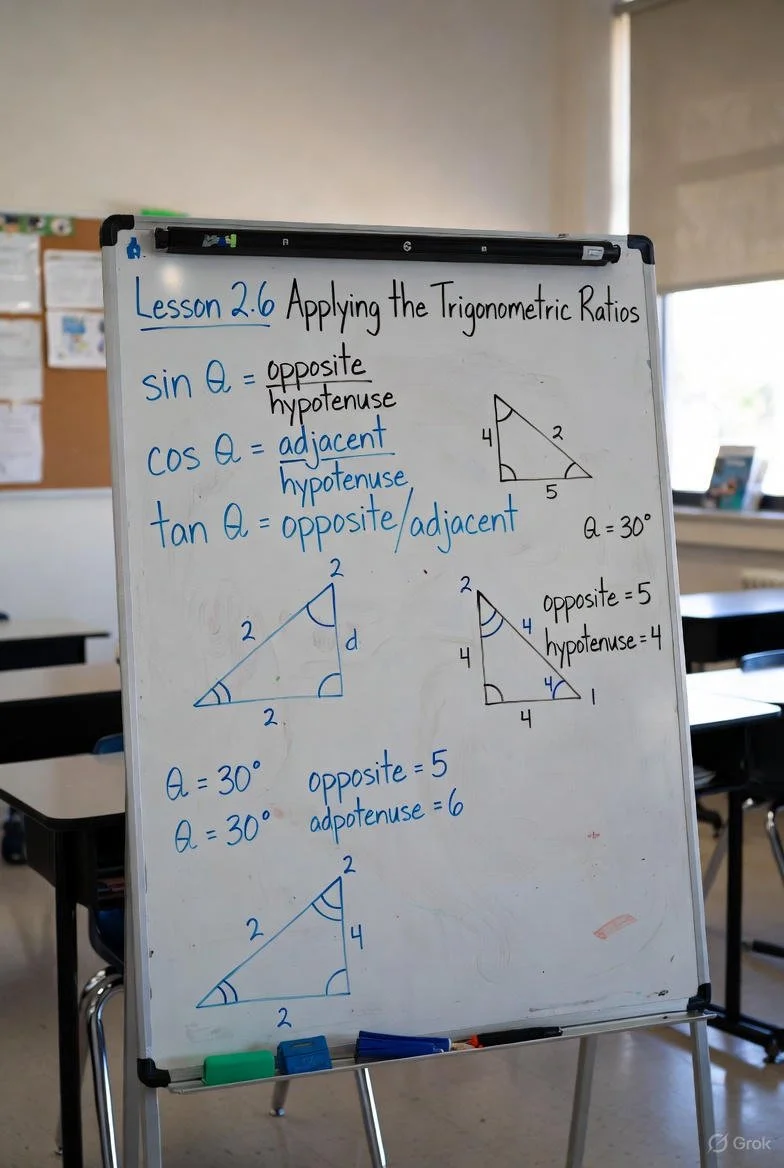 Lesson 2.6 Applying the Trigonometric Ratios
sin Q = opposite
hypotenuse
cos Q = adjacent
hypotenuse
tan Q = opposite/adjacent
4
2
5
Q = 30°
2
2
d
2
2
4
4
4
4
1
opposite = 5
hypotenuse = 4
Q = 30°
opposite = 5
Q = 30°
adpotenuse = 6
2
2
4
2
Grok